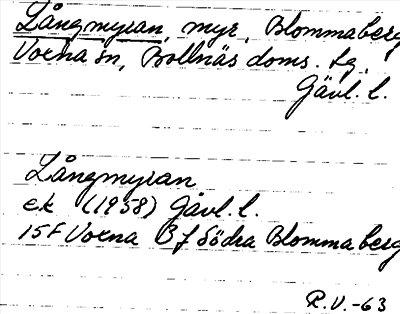 Långmyran, myr, Blommaberg
Voxna sn, Bollnäs doms. tg.
Gävl. l.
Långmyran
ek (1958) Gävl. l.
15F Voxna 3 f Södra Blommaberg
R.V.-63